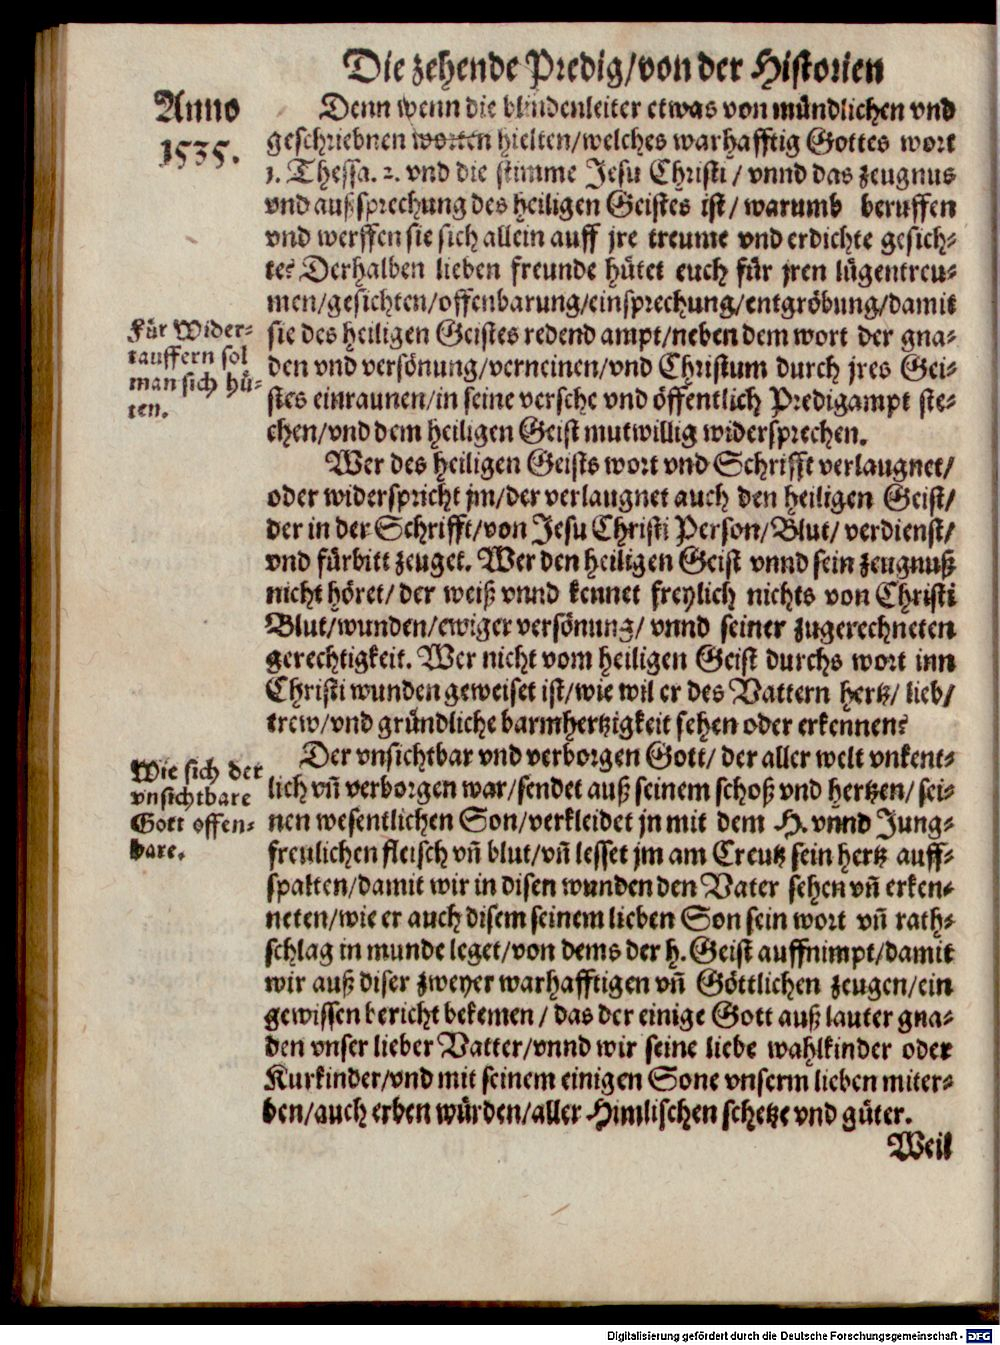 Die zehende Predig/von der Historien
Anno
1535.
Denn wenn die blindenleiter etwas von mündlichen vnd
geschriebnen worten hielten/welches warhafftig Gottes wort
1. Thessa. 2. vnd die stimme Jesu Christi / vnnd das zeugnus
vnd außsprechung des heiligen Geistes ist/ warumb beruffen
vnd werffen sie sich allein auff jre treume vnd erdichte gesich-
te? Derhalben lieben freunde hütet euch für jren lügentreu-
men/gesichten/offenbarung/einsprechung/entgröbung/damit
sie des heiligen Geistes redend ampt/neben dem wort der gna-
den vnd versönung/verneinen/vnd Christum durch jres Gei-
stes einraunen/in seine versche vnd öffentlich Predigampt ste-
chen/vnd dem heiligen Geist mutwillig widersprechen.
Für Wider-
tauffern sol
man sich hü-
ten.
Wer des heiligen Geists wort vnd Schrifft verlaugnet/
oder widerspricht jm/der verlaugnet auch den heiligen Geist/
der in der Schrifft/von Jesu Christi Person/Blut/ verdienst/
vnd fürbitt zeuget. Wer den heiligen Geist vnnd sein zeugnuß
nicht höret/ der weiß vnnd kennet freylich nichts von Christi
Blut/wunden/ewiger versönung/ vnnd seiner zugerechneten
gerechtigkeit. Wer nicht vom heiligen Geist durchs wort inn
Christi wunden geweiset ist/wie wil er des Vattern hertz/ lieb/
trew/vnd gründliche barmhertzigkeit sehen oder erkennen?
Der vnsichtbar vnd verborgen Gott/ der aller welt vnkent-
lich vn̄ verborgen war/sendet auß seinem schoß vnd hertzen/ sei-
nen wesentlichen Son/verkleidet jn mit dem H. vnnd Jung-
freulichen fleisch vn̄ blut/vn̄ lesset jm am Creutz sein hertz auff-
spalten/damit wir in disen wunden den Vater sehen vn̄ erken-
neten/wie er auch disem seinem lieben Son sein wort vn̄ rath-
schlag in munde leget/von dems der h. Geist auffnimpt/damit
wir auß diser zweyer warhafftigen vn̄ Göttlichen zeugen/ein
gewissen bericht bekemen / das der einige Gott auß lauter gna-
den vnser lieber Vatter/vnnd wir seine liebe wahlkinder oder
Kurkinder/vnd mit seinem einigen Sone vnserm lieben miter-
ben/auch erben würden/aller Himlischen schetze vnd güter.
Wie sich der
vnsichtbare
Gott offen-
bare.
Weil
Digitalisierung gefördert durch die Deutsche Forschungsgemeinschaft - DFG